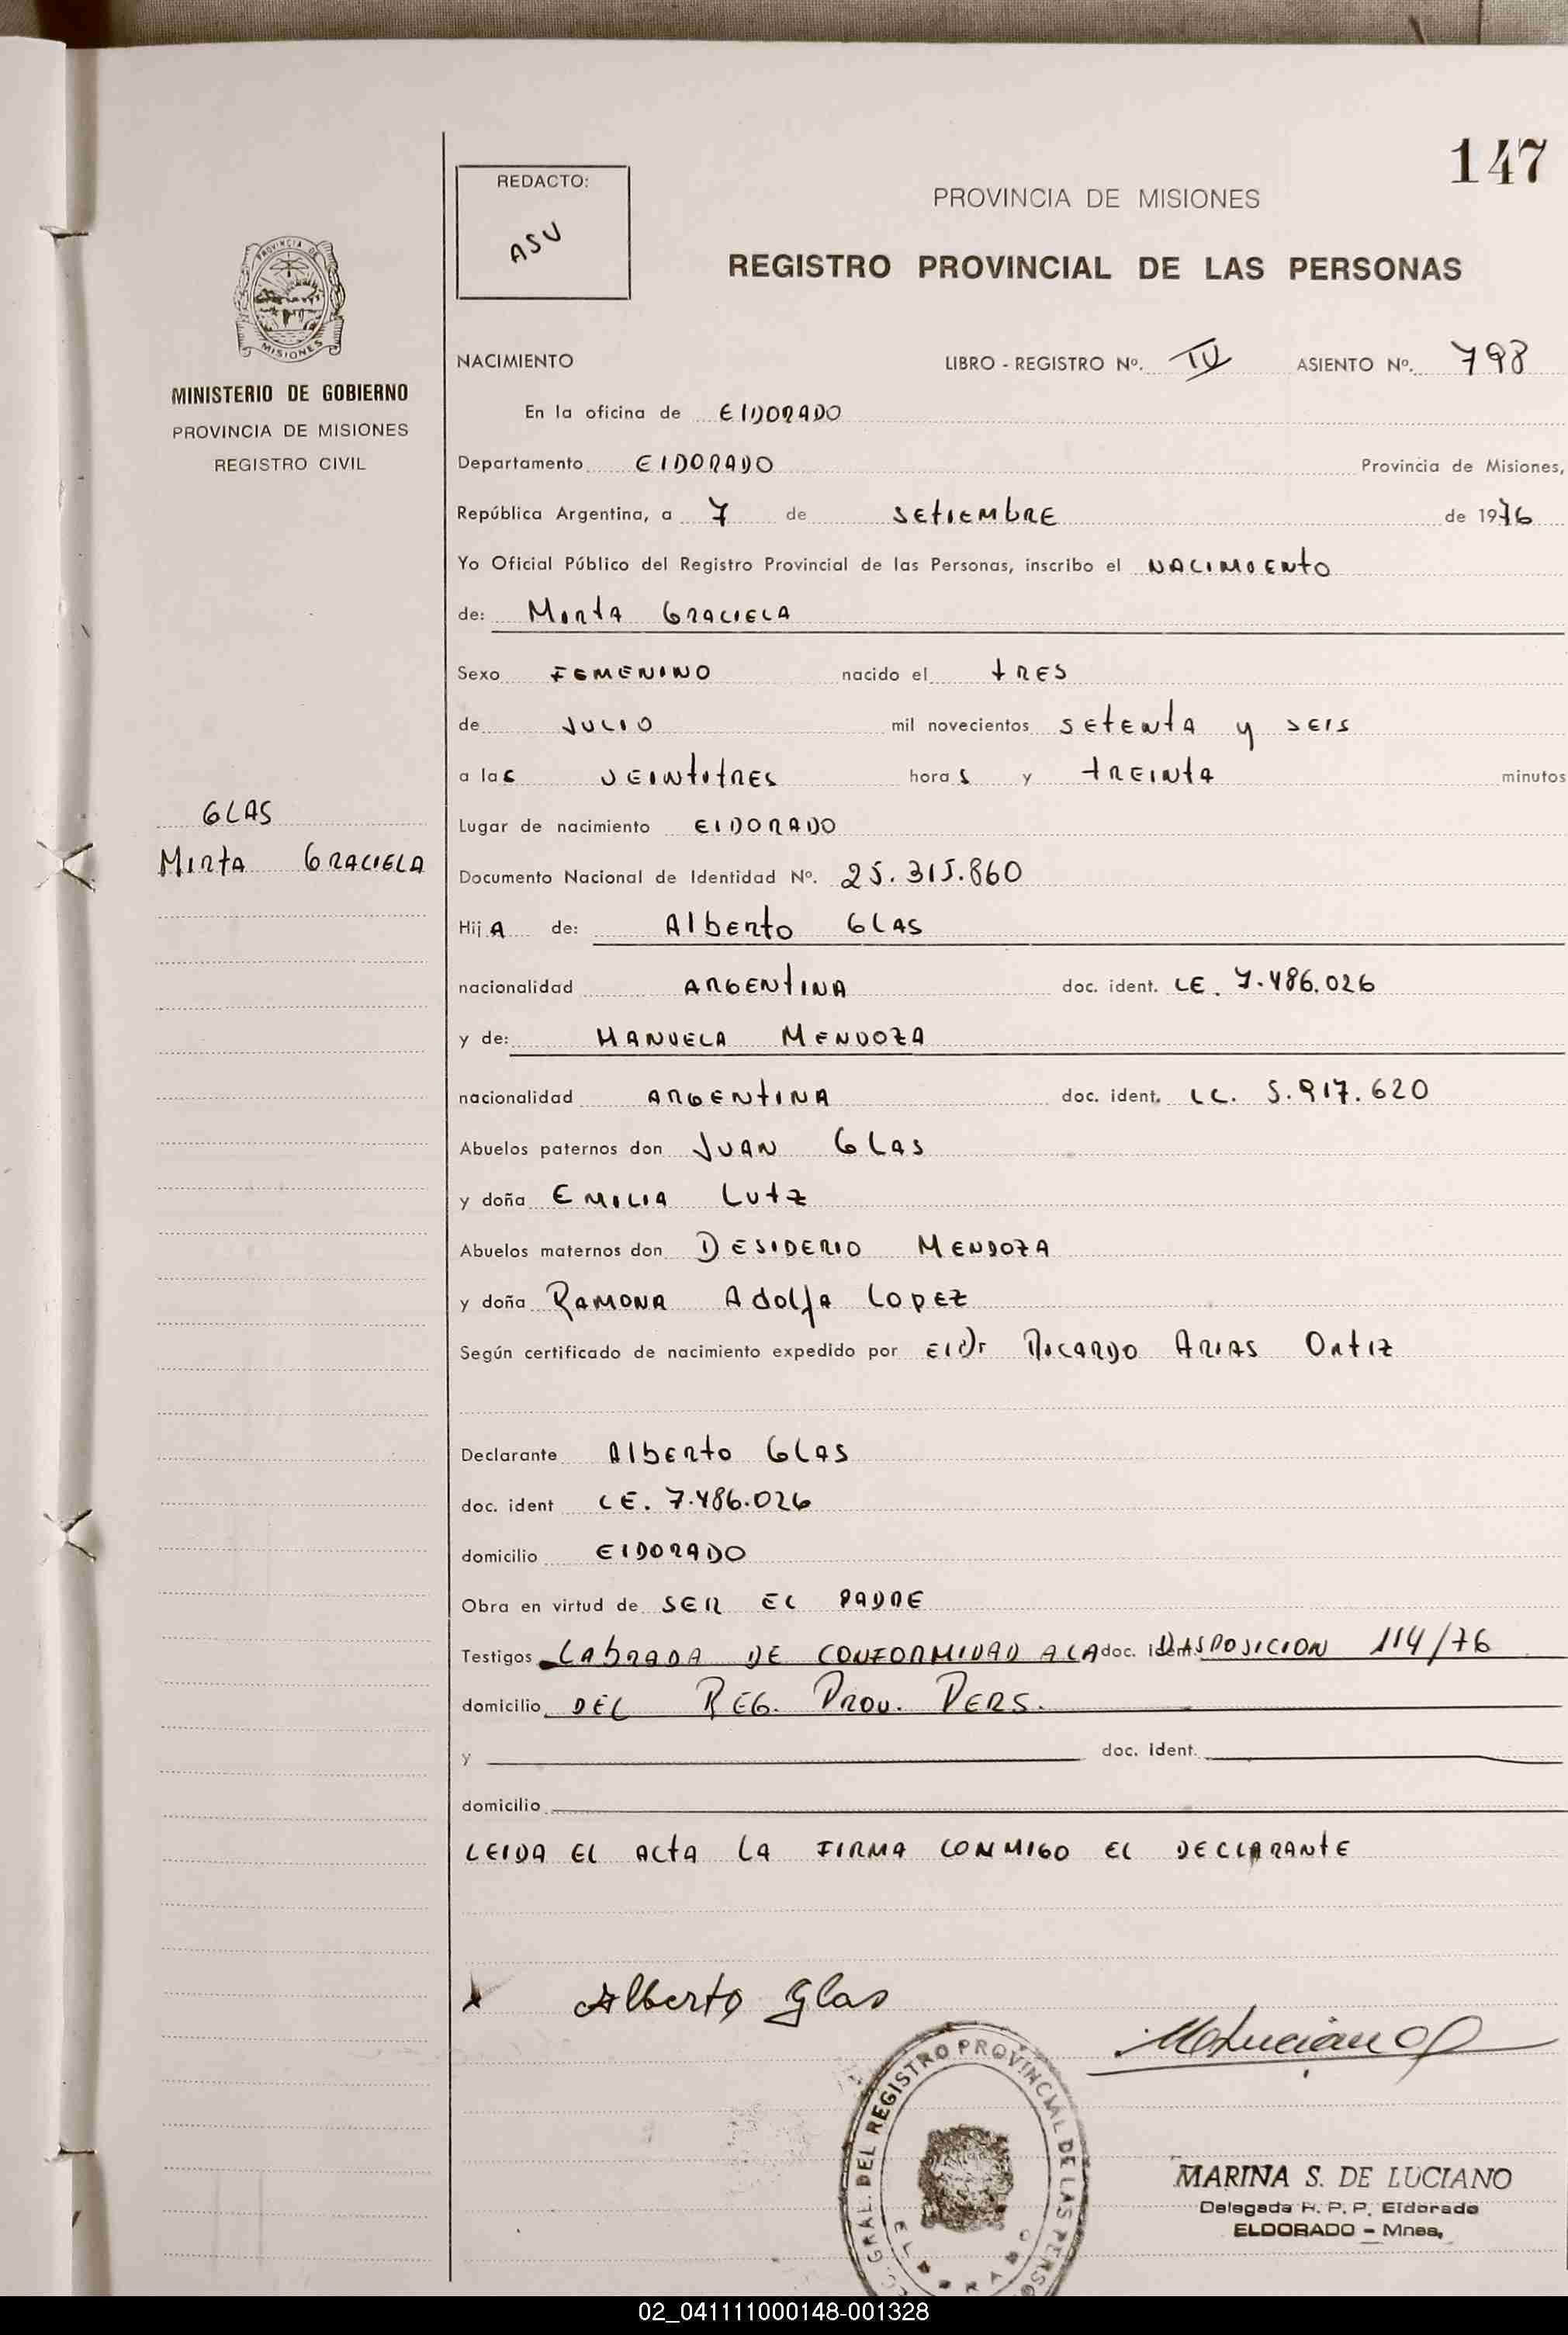 147
REDACTO:
ASU
PROVINCIA DE MISIONES
REGISTRO PROVINCIAL DE LAS PERSONAS
PROVINCIA DE
MISIONES
MINISTERIO DE GOBIERNO
PROVINCIA DE MISIONES
REGISTRO CIVIL
NACIMIENTO LIBRO - REGISTRO Nº. IV ASIENTO Nº. 798
En la oficina de ElDORADO
Departamento ElDORADO Provincia de Misiones,
República Argentina, a 7 de SEtIEMbRE de 1976
Yo Oficial Público del Registro Provincial de las Personas, inscribo el NACIMIENtO
de: MIRtA GRACIELA
Sexo FEMENINO nacido el tRES
de JULIO mil novecientos SEtENtA y SEIS
a las VEINtitRES horas y tREINtA minutos
GLAS
MIRtA GRACIELA
Lugar de nacimiento ElDORADO
Documento Nacional de Identidad Nº. 25.315.860
HijA de: AlbERtO GLAS
nacionalidad ARGENtINA doc. ident. LE. 7.486.026
y de: MANUELA MENDOZA
nacionalidad ARGENtINA doc. ident. LC. 5.917.620
Abuelos paternos don JUAN GLAS
y doña EMILIA LUtZ
Abuelos maternos don DESIDERIO MENDOZA
y doña RAMONA AdOlfA LOpEZ
Según certificado de nacimiento expedido por El Dr RICARDO ARIAS ORtIZ
Declarante AlbERtO GLAS
doc. ident LE. 7.486.026
domicilio ElDORADO
Obra en virtud de SER EL PADRE
Testigos LAbRADA DE CONFORMIDAD A LA doc. ident. DISPOSICION 114/76
domicilio DEL REG. PROV. PERS.
y doc. ident.
domicilio
LEIDA El ACtA LA FIRMA CONMIGO El DECLARANtE
x Alberto Glas
MdeLuciano
GRAL. DEL REGISTRO PROVINCIAL DE LAS PERSO
ELDORADO
MARINA S. DE LUCIANO
Delegada R. P. P. Eldorado
ELDORADO - Mnes.
02_041111000148-001328